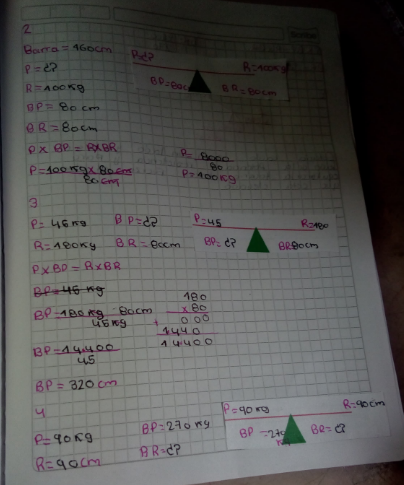 2
Barra = 160cm
P = ¿?
R = 100Kg
BP = 80cm
BR = 80cm
P=¿? R=100Kg
BP=80cm BR=80cm
P x BP = R x BR
P=100Kg x 80cm
80cm
P= 8000
80
P=100Kg
3
P= 45Kg BP=¿?
R=180Kg BR=80cm
P=45 R=180
BP=¿? BR80cm
P x BP = R x BR
BP=45 Kg
BP=180Kg 80cm
45Kg
180
x80
000
+ 1440
14400
BP=14.400
45
BP= 320cm
4
P=90Kg BP=270Kg
R=90cm BR=¿?
P=90Kg R=90cm
BP =270 BR=¿?